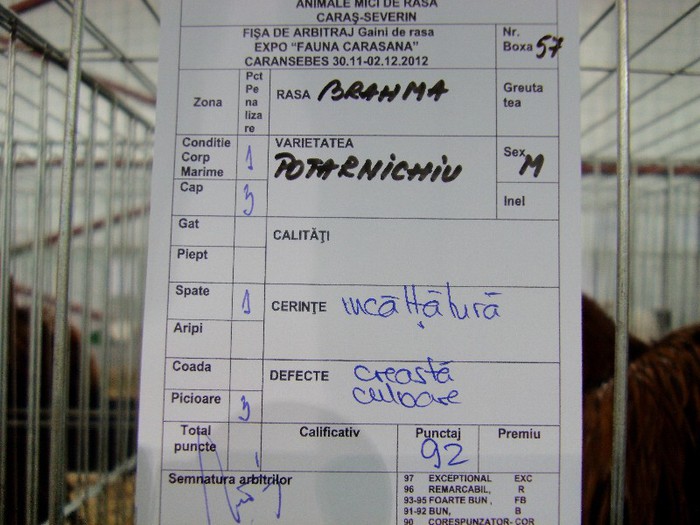 ANIMALE MICI DE RASA
CARAȘ-SEVERIN
FIȘA DE ARBITRAJ Gaini de rasa
EXPO "FAUNA CARASANA"
CARANSEBES 30.11-02.12.2012
Nr.
Boxa 57
Zona
Pct
Pe
na
liza
re
RASA BRAHMA
Greuta
tea
Conditie
Corp
Marime
1
VARIETATEA
POTARNICHIU
Sex M
Cap
3
Inel
Gat
CALITĂŢI
Piept
Spate
1
CERINŢE incălțătură
Aripi
Coada
DEFECTE creastă
culoare
Picioare
3
Total
puncte
Calificativ
Punctaj
92
Premiu
Semnatura arbitrilor
97 EXCEPTIONAL EXC
96 REMARCABIL, R
93-95 FOARTE BUN, FB
91-92 BUN, B
90 CORESPUNZATOR-COR